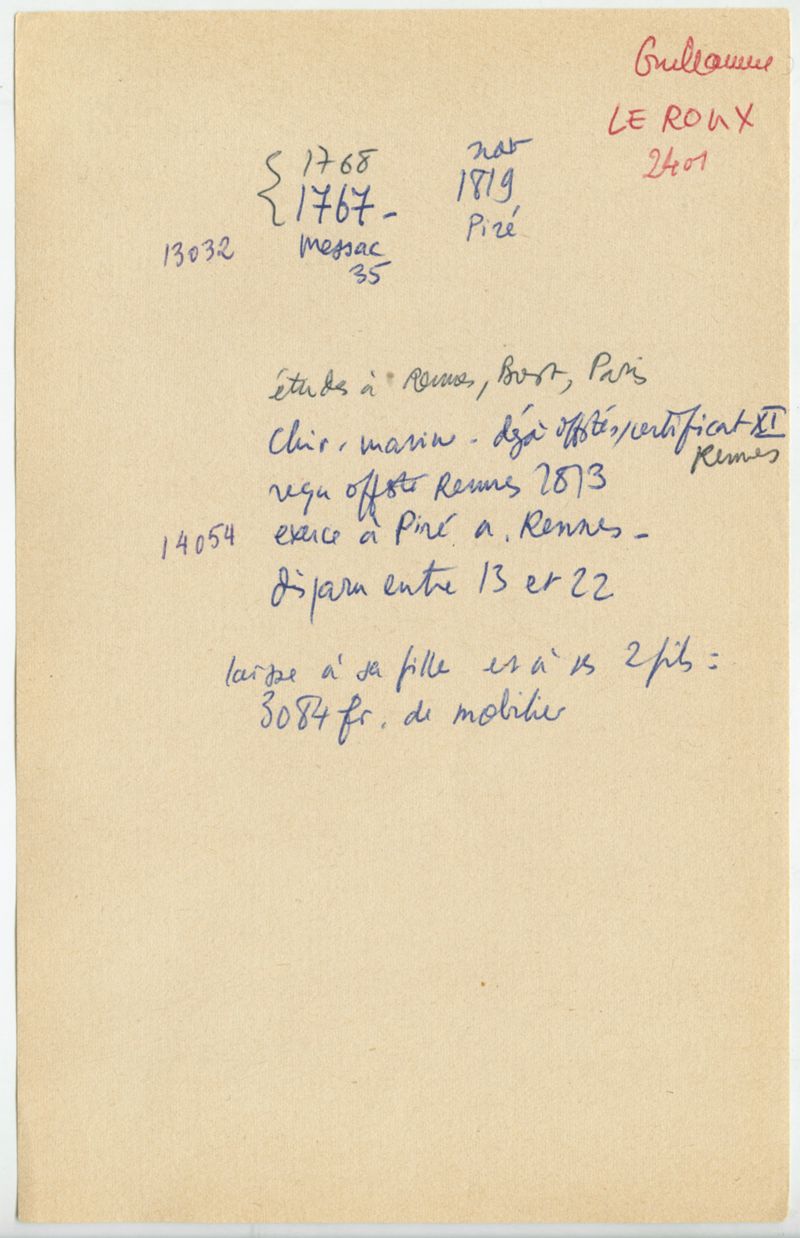 Guillaume
LE ROUX
2401
1768
1767 - 1819
13032 Messac Piré
35
études à Rennes, Brest, Paris
Chir. marine - déjà offsté s/certificat XI
Rennes
reçu offsté Rennes 1813
14054 exerce à Piré a. Rennes -
disparu entre 13 et 22
laisse à sa fille et à ses 2 fils =
3084 fr. de mobilier